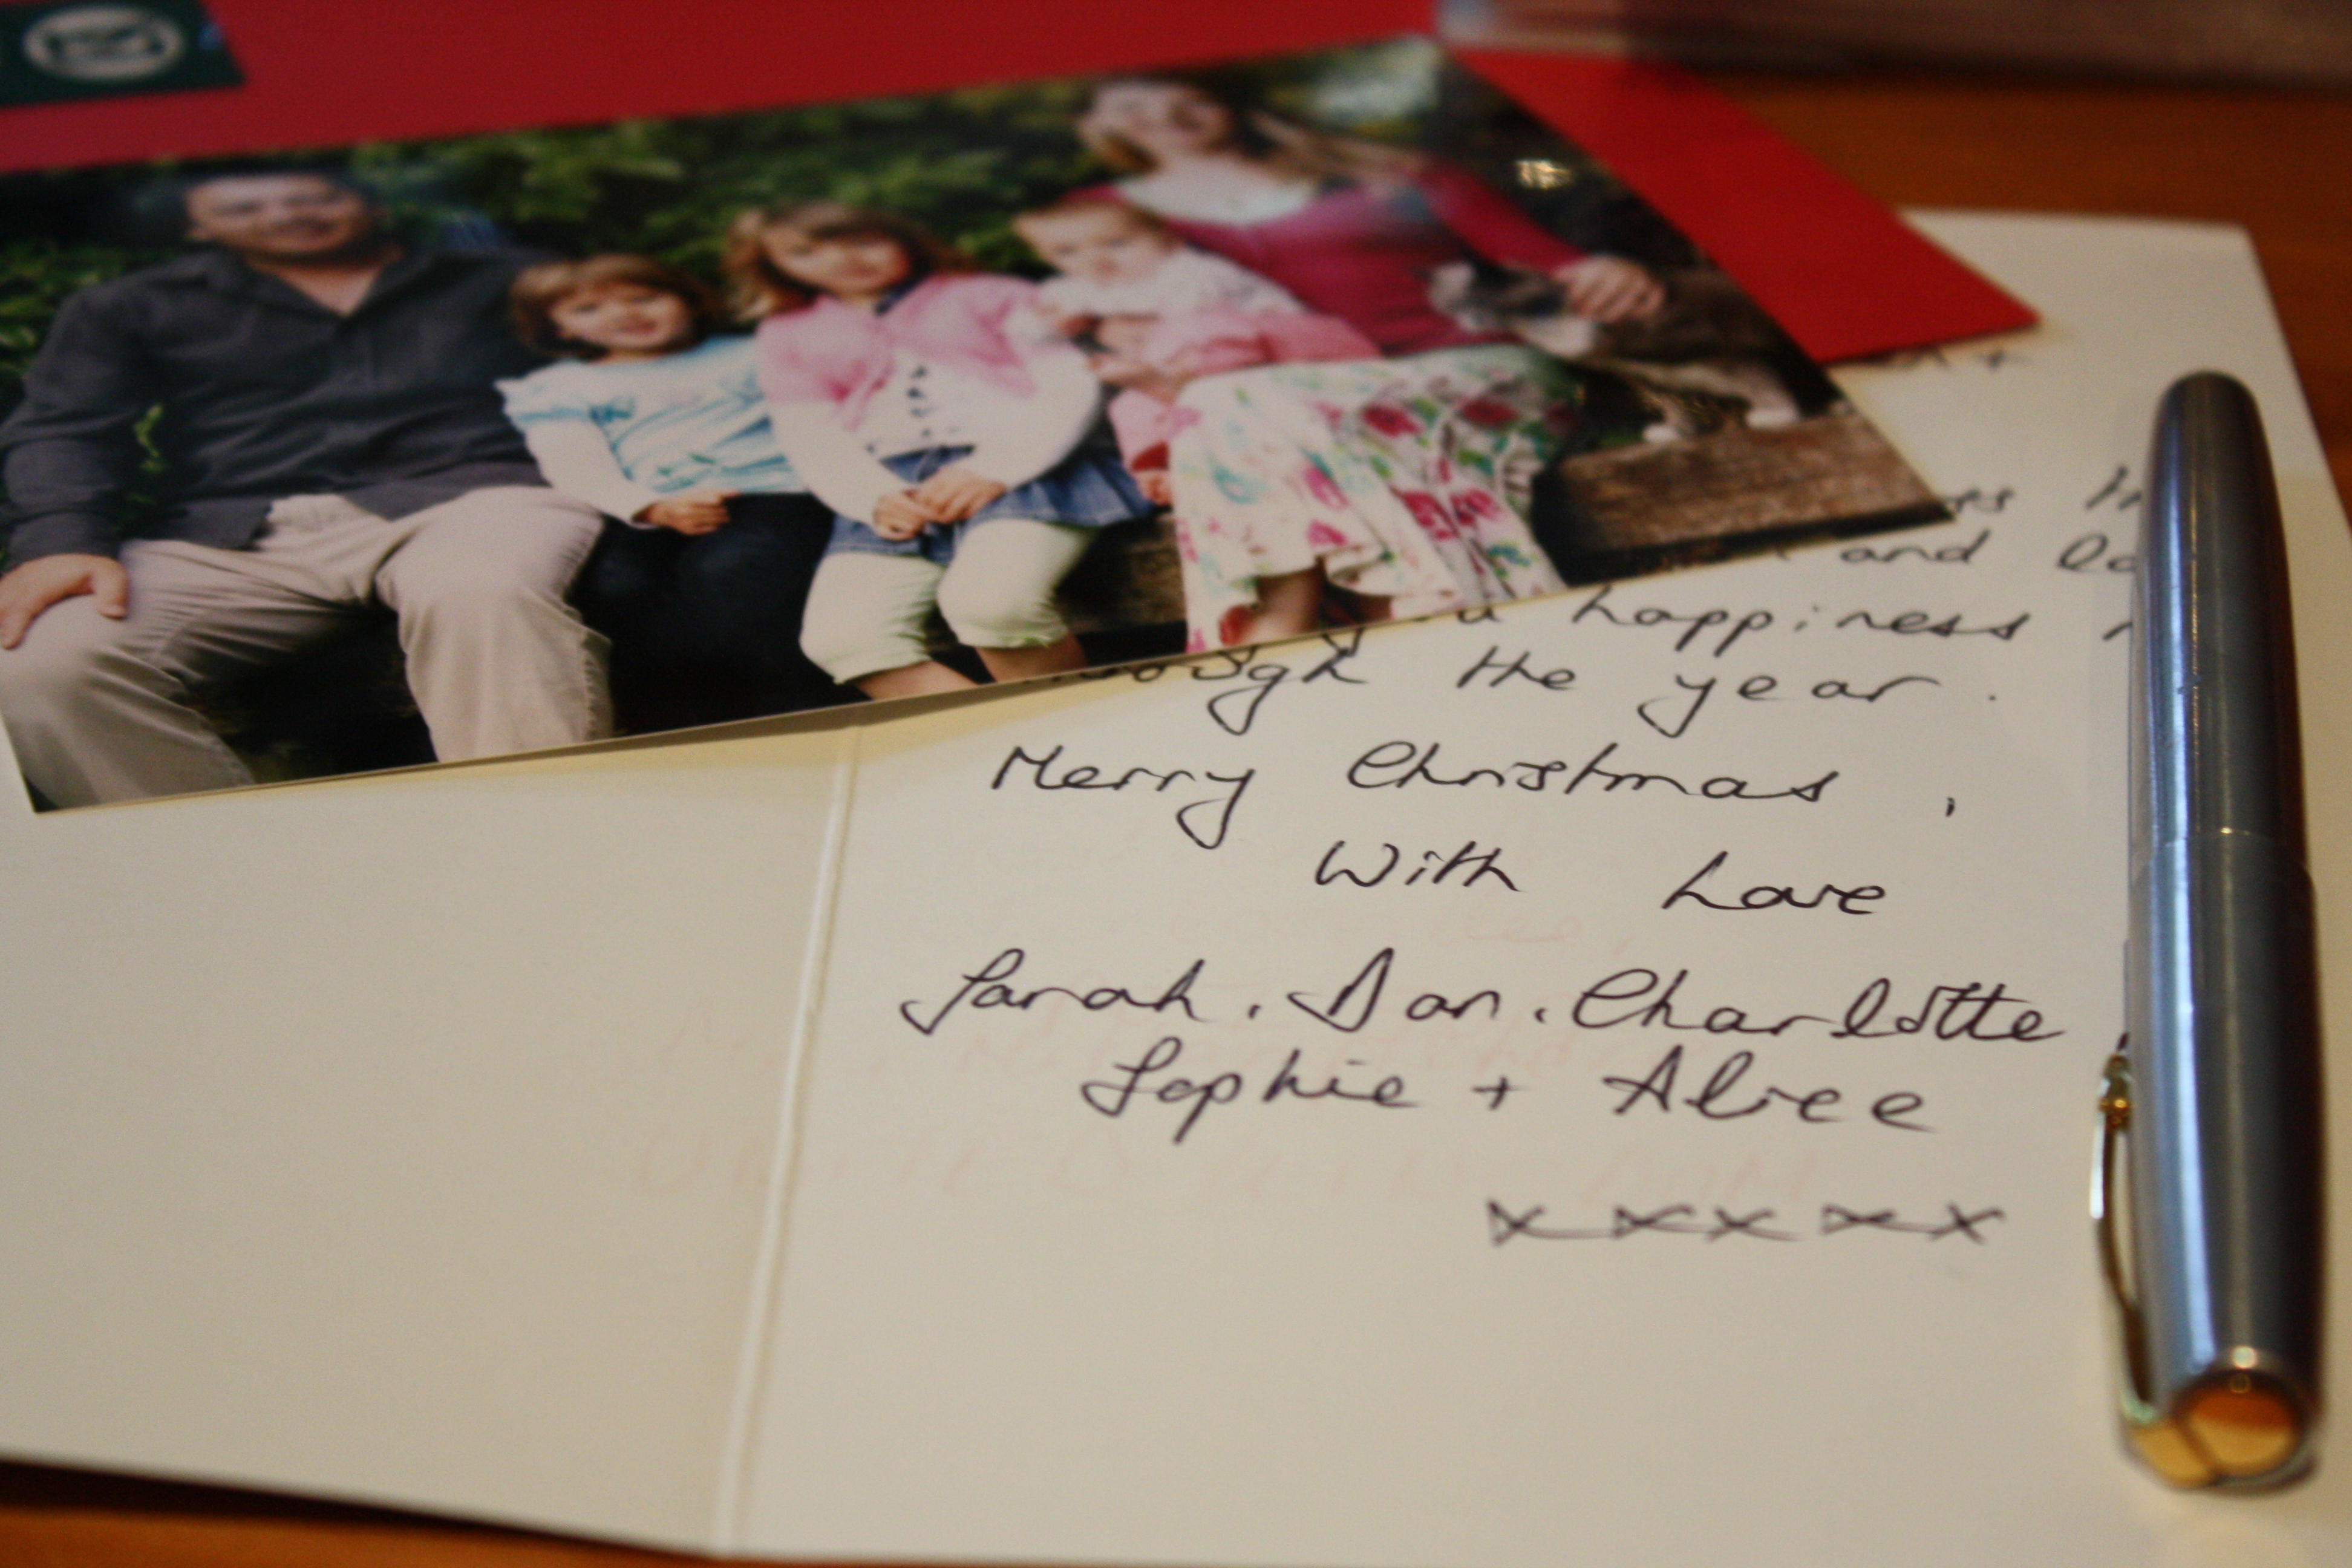 and
happiness
through the year.
Merry Christmas,
With Love
Sarah, Dan, Charlotte,
Sophie + Alice
xxxxx